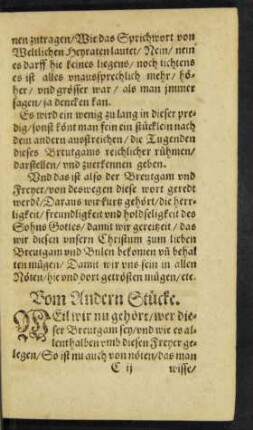 nen zutragen/ Wie das Sprichwort von
Weltlichen Heyraten lautet/ Nein/ nein
es darff hie keines liegens/ noch tichtens
es ist alles vnaussprechlich mehr/ hö-
her/ vnd grösser war/ als man jmmer
sagen/ ja dencken kan.
Es wird ein wenig zu lang in dieser pre-
dig/ sonst könt man fein ein stücklein nach
dem andern ausstreichen/ die Tugenden
dieses Breutgams reichlicher rühmen/
darstellen/ vnd zuerkennen geben.
Vnd das ist also der Breutgam vnd
Freyer/ von deswegen diese wort geredt
werdē/ Daraus wir kurtz gehört/ die herr-
ligkeit/ freundligkeit vnd holdseligkeit des
Sohns Gottes/ damit wir gereitzet/ das
wir diesen vnsern Christum zum lieben
Breutgam vnd Bulen bekomen vn̄ behal
ten mügen/ Damit wir vns sein in allen
Nöten/ hie vnd dort getrösten mügen/ etc.
Vom Andern Stücke.
WEil wir nu gehört/ wer die-
ser Breutgam sey/ vnd wie es al-
lenthalben vmb diesen Freyer ge-
legen/ So ist nu auch von nöten/ das man
C ij wisse/